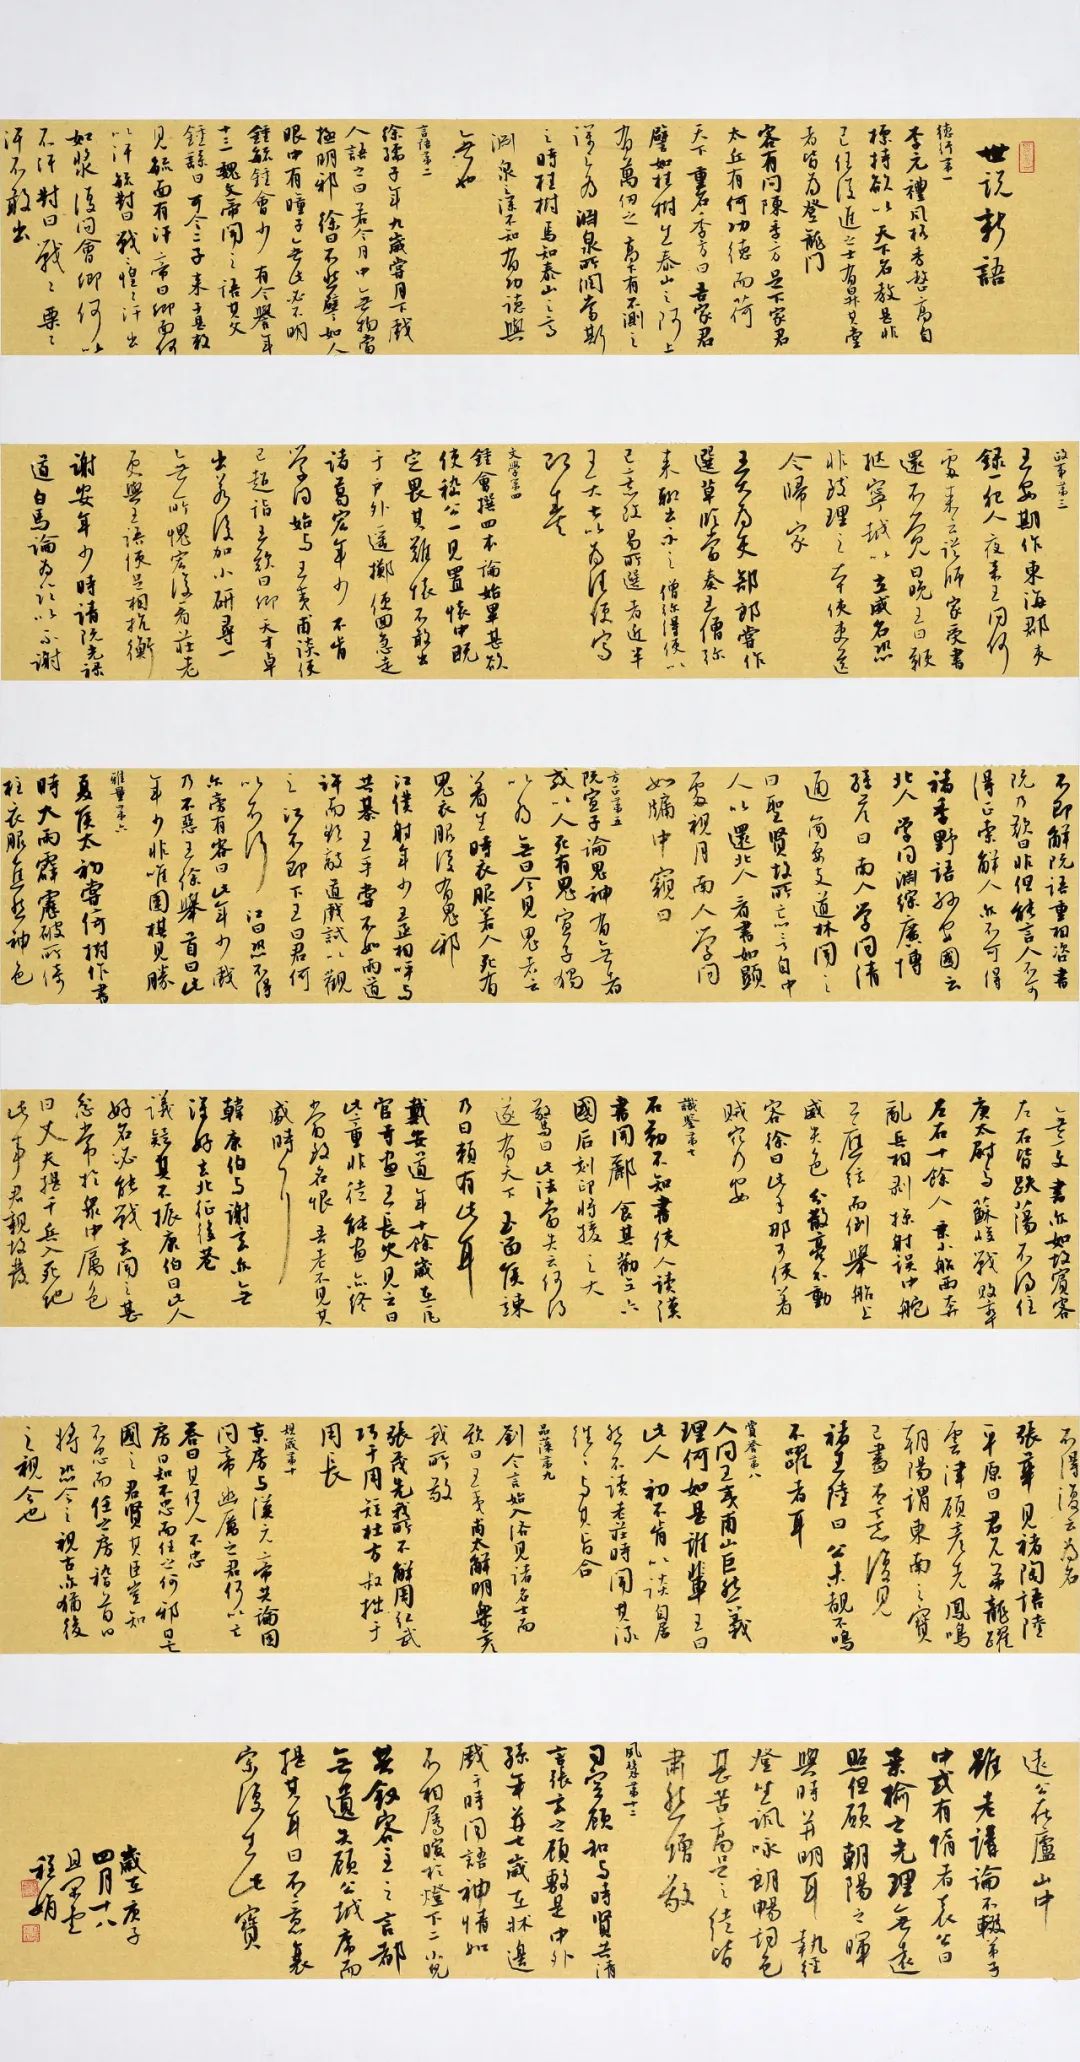 世説新語
德行第一
李元禮風格秀整高自
標持欲以天下名教是非
己任後進之士有昇其堂
者皆為登龍門
客有問陳季方足下家君
太丘有何功德而荷
天下重名季方曰吾家君
譬如桂樹生泰山之阿上
有萬仞之高下有不測之
深上為
淵泉所潤當斯
之時桂樹焉知泰山之高
淵泉之深不知有功德與
無也
言語第二
徐孺子年九歲嘗月下戲
人語之曰若令月中無物當
極明邪徐曰不然譬如人
眼中有瞳子無此必不明
鍾毓鍾會少有令譽年
十三魏文帝聞之語其父
鍾繇曰可令二子來於是敕
見毓面有汗帝曰卿面何
以汗毓對曰戰戰惶惶汗出
如漿復問會卿何以
不汗對曰戰戰栗栗
汗不敢出
政事第三
王安期作東海郡吏
錄一犯人夜來王問何
處來云從師家受書
還不覺日晚王曰鞭
撻寧越以立威名恐
非致理之本使吏送
令歸家
王大為吏部郎嘗作
選草臨當奏王僧彌
來聊出示之僧彌得便以
己意改易所選者近半
王大甚以為佳便寫
即奏
文學第四
鍾會撰四本論始畢甚欲
使嵇公一見置懷中既
定畏其難懷不敢出
于戶外遥擲便回急走
諸葛宏年少不肯
學問始与王夷甫談便
已超詣王歎曰卿天才卓
出若復加小研尋一
無所愧宏後看莊老
更與王語便足相抗衡
謝安年少時請阮光祿
道白馬論為論以示謝
不即解阮語重相咨盡
阮乃歎曰非但能言人不可
得正索解人亦不可得
褚季野語孫安國云
北人學問淵綜廣博
孫答曰南人學問清
通簡要支道林聞之
曰聖賢故所忘言自中
人以還北人看書如顯
處視月南人學問
如牖中窺日
方正第五
阮宣子論鬼神有無者
或以人死有鬼宣子獨
以為無曰今見鬼者云
着生時衣服若人死有
鬼衣服復有鬼邪
江僕射年少王丞相呼与
共棊王手嘗不如兩道
許而欲敵道戲試以觀
之江不即下王曰君何
以不行江曰恐不得
尔旁有客曰此年少戲
乃不惡王徐舉首曰此
年少非唯圍棋見勝
雅量第六
夏侯太初嘗倚柱作書
時大雨霹靂破所倚
柱衣服焦然神色
無變書亦如故賓客
左右皆跌蕩不得住
庾太尉与蘇峻戰敗率
左右十餘人乘小船西奔
亂兵相剥掠射誤中舵
工應弦而倒舉船上
咸失色分散亮不動
容徐曰此手那可使着
賊衆乃安
識鑒第七
石勒不知書使人讀漢
書聞酈食其勸立六
國后刻印將授之大
驚曰此法當失云何得
遂有天下至留侯諫
乃曰賴有此耳
戴安道年十餘歲在瓦
官寺畫王長史見之曰
此童非徒能畫亦終
當致名恨吾老不見其
盛時耳
韓康伯与謝玄亦無
深好玄北征後巷
議疑其不振康伯曰此人
好名必能戰玄聞之甚
忿常於衆中厲色
曰丈夫提千兵入死地
此事君親故發
不得復云為名
賞譽第八
張華見褚陶語陸
平原曰君兄弟龍躍
雲津顧彦先鳳鳴
朝陽謂東南之寶
已盡不意復見
褚生陸曰公未覩不鳴
不躍者耳
人問王夷甫山巨然義
理何如是誰輩王曰
此人初不肯以談自居
然不讀老莊時聞其詠
往往与其旨合
品藻第九
劉令言始入洛見諸名士而
歎曰王夷甫太解明樂彦
我所敬
張茂先我所不解周弘武
巧于用短杜方叔拙于
用長
規箴第十
京房与漢元帝共論因
問帝幽厲之君何以亡
答曰其任人不忠
房曰知不忠而任之何邪曰亡
國之君賢其臣豈知
不忠而任之房稽首曰
將恐今之視古亦猶後
之視今也
遠公在廬山中
雖老講論不輟弟子
中或有惰者遠公曰
桑榆之光理無遠
照但願朝陽之暉
與時並明耳執經
登坐諷咏朗暢詞色
甚苦高足之徒皆
肅然增敬
司空顧和与時賢共清
言張玄之顧敷是中外
孫年並七歲在牀邊
戲于時聞語神情如
不相屬瞑於燈下二小兒
共敘客主之言都
無遺失顧公越席而
提其耳曰不意衰
宗復生此寶
歲在庚子
四月十八